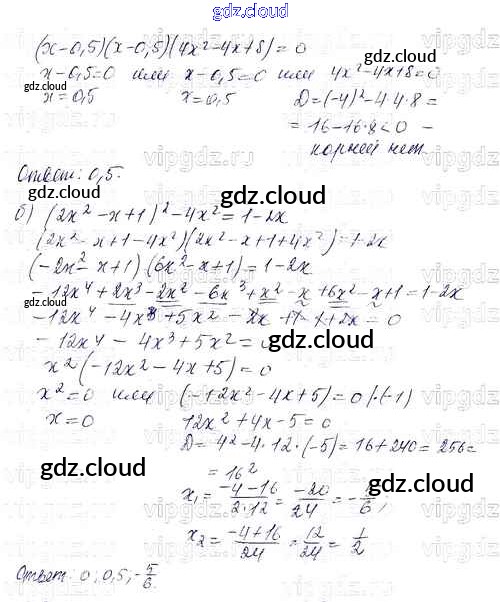 gdz.cloud
(x-0,5)(x-0,5)(4x²-4x+8)=0
x-0,5=0 или x-0,5=0 или 4x²-4x+8=0
x=0,5 x=0,5 D=(-4)²-4·4·8=
=16-16·8<0 –
корней нет
Ответ: 0,5.
б) (2x²-x+1)²-4x²=1-2x
(2x²-x+1-4x²)(2x²-x+1+4x²)=1-2x
(-2x²-x+1)(6x²-x+1)=1-2x
-12x⁴+2x³-2x²-6x³+x²-x+6x²-x+1=1-2x
-12x⁴-4x³+5x²-2x+1-1+2x=0
-12x⁴-4x³+5x²=0
x²(-12x²-4x+5)=0
x²=0 или (-12x²-4x+5)=0 |·(-1)
x=0 12x²+4x-5=0
D=4²-4·12·(-5)=16+240=256=
=16²
x₁=(-4-16)/(2·12)=-20/24=-5/6;
x₂=(-4+16)/24=12/24=1/2
Ответ: 0; 0,5; -5/6